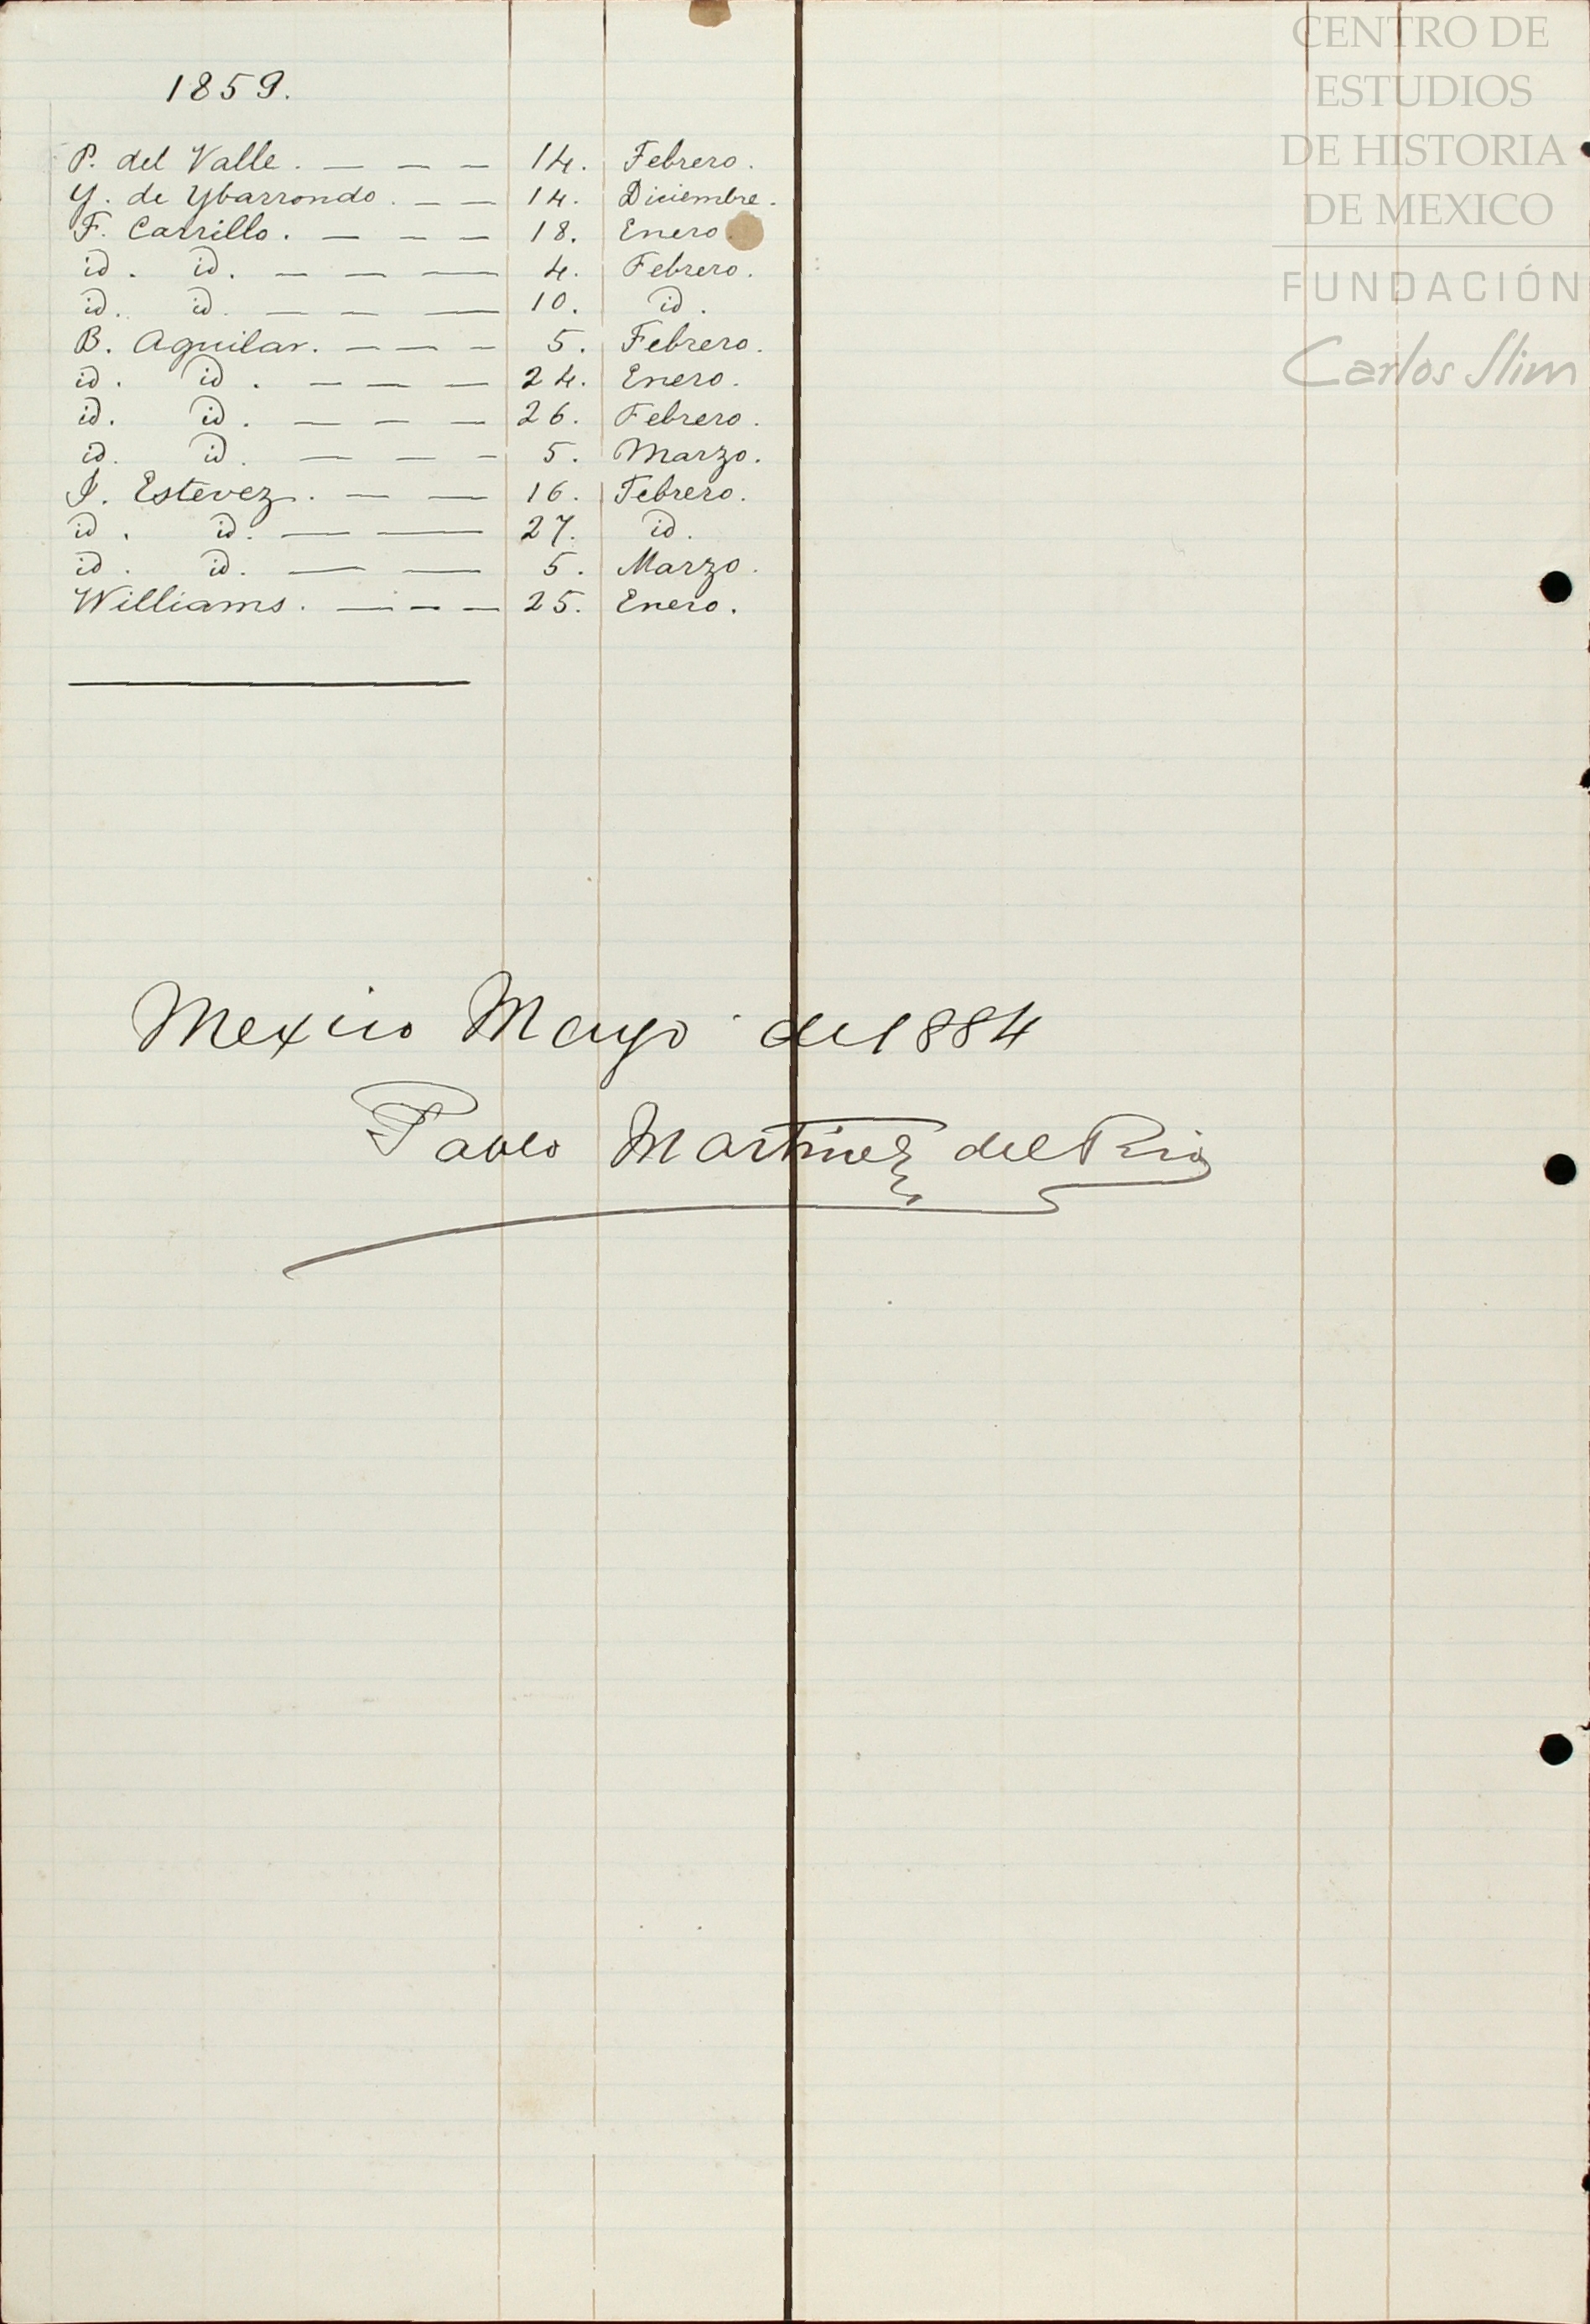 1859.
P. del Valle. — — — 14. Febrero.
Y. de Ybarrondo. — — 14. Diciembre.
F. Carrillo. — — — 18. Enero.
id. id. — — — 4. Febrero.
id. id. — — — 10. id.
B. Aguilar. — — — 5. Febrero.
id. id. — — — 24. Enero.
id. id. — — — 26. Febrero.
id. id. — — — 5. Marzo.
J. Estevez. — — 16. Febrero.
id. id. — — 27. id.
id. id. — — 5. Marzo.
Williams. — — — 25. Enero.
Mexico Mayo de 1884
Pablo Martinez del Rio
CENTRO DE
ESTUDIOS
DE HISTORIA
DE MEXICO
FUNDACIÓN
Carlos Slim